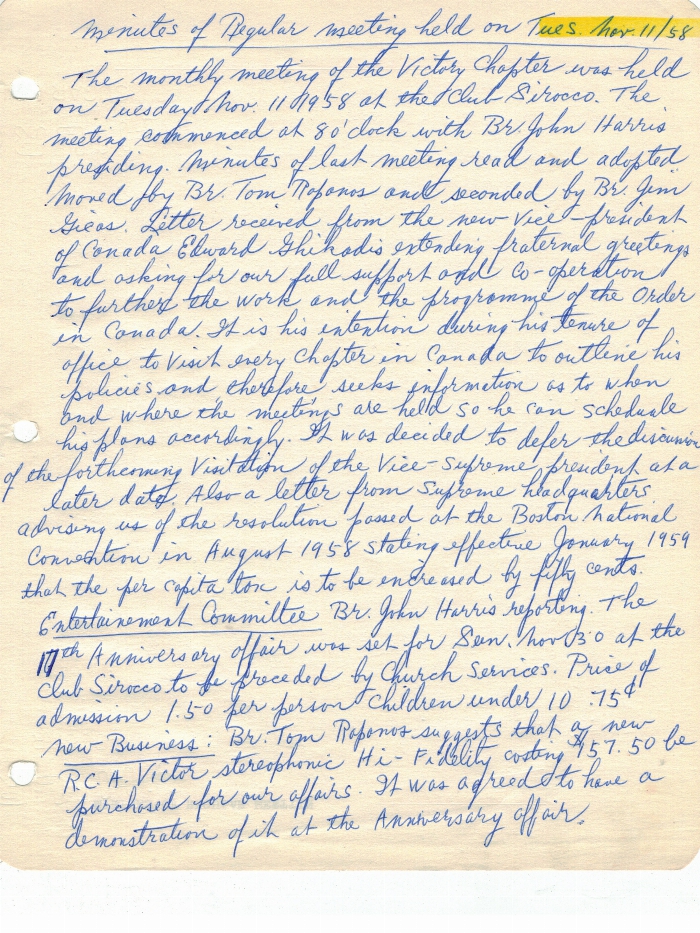 Minutes of Regular meeting held on Tues. Nov. 11/58
The monthly meeting of the Victory Chapter was held
on Tuesday Nov. 11 1958 at the Club Sirocco. The
meeting commenced at 8 o'clock with Br. John Harris
presiding. Minutes of last meeting read and adopted
moved by Br. Tom Raponos and seconded by Br. Jim
Gicas. Letter received from the new Vice-president
of Canada Edward Ghikadis extending fraternal greetings
and asking for our full support and co-operation
to further the work and the programme of the Order
in Canada. It is his intention during his tenure of
office to visit every Chapter in Canada to outline his
policies and, therefore seeks information as to when
and where the meetings are held so he can schedule
his plans accordingly. It was decided to defer the discussion
of the forthcoming Visitation of the Vice-Supreme president at a
later date. Also a letter from Supreme headquarters
advising us of the resolution passed at the Boston National
Convention in August 1958 stating effective January 1959
that the per capita tax is to be encreased by fifty cents.
Entertainement Committee Br. John Harris reporting. The
17th Anniversary affair was set for Sun. Nov 30 at the
Club Sirocco to be preceded by Church Services. Price of
admission 1.50 per person Children under 10 .75¢
New Business: Br. Tom Raponos suggests that a new
R.C.A. Victor stereophonic Hi-Fidelity costing $157.50 be
purchased for our affairs. It was agreed to have a
demonstration of it at the Anniversary affair.